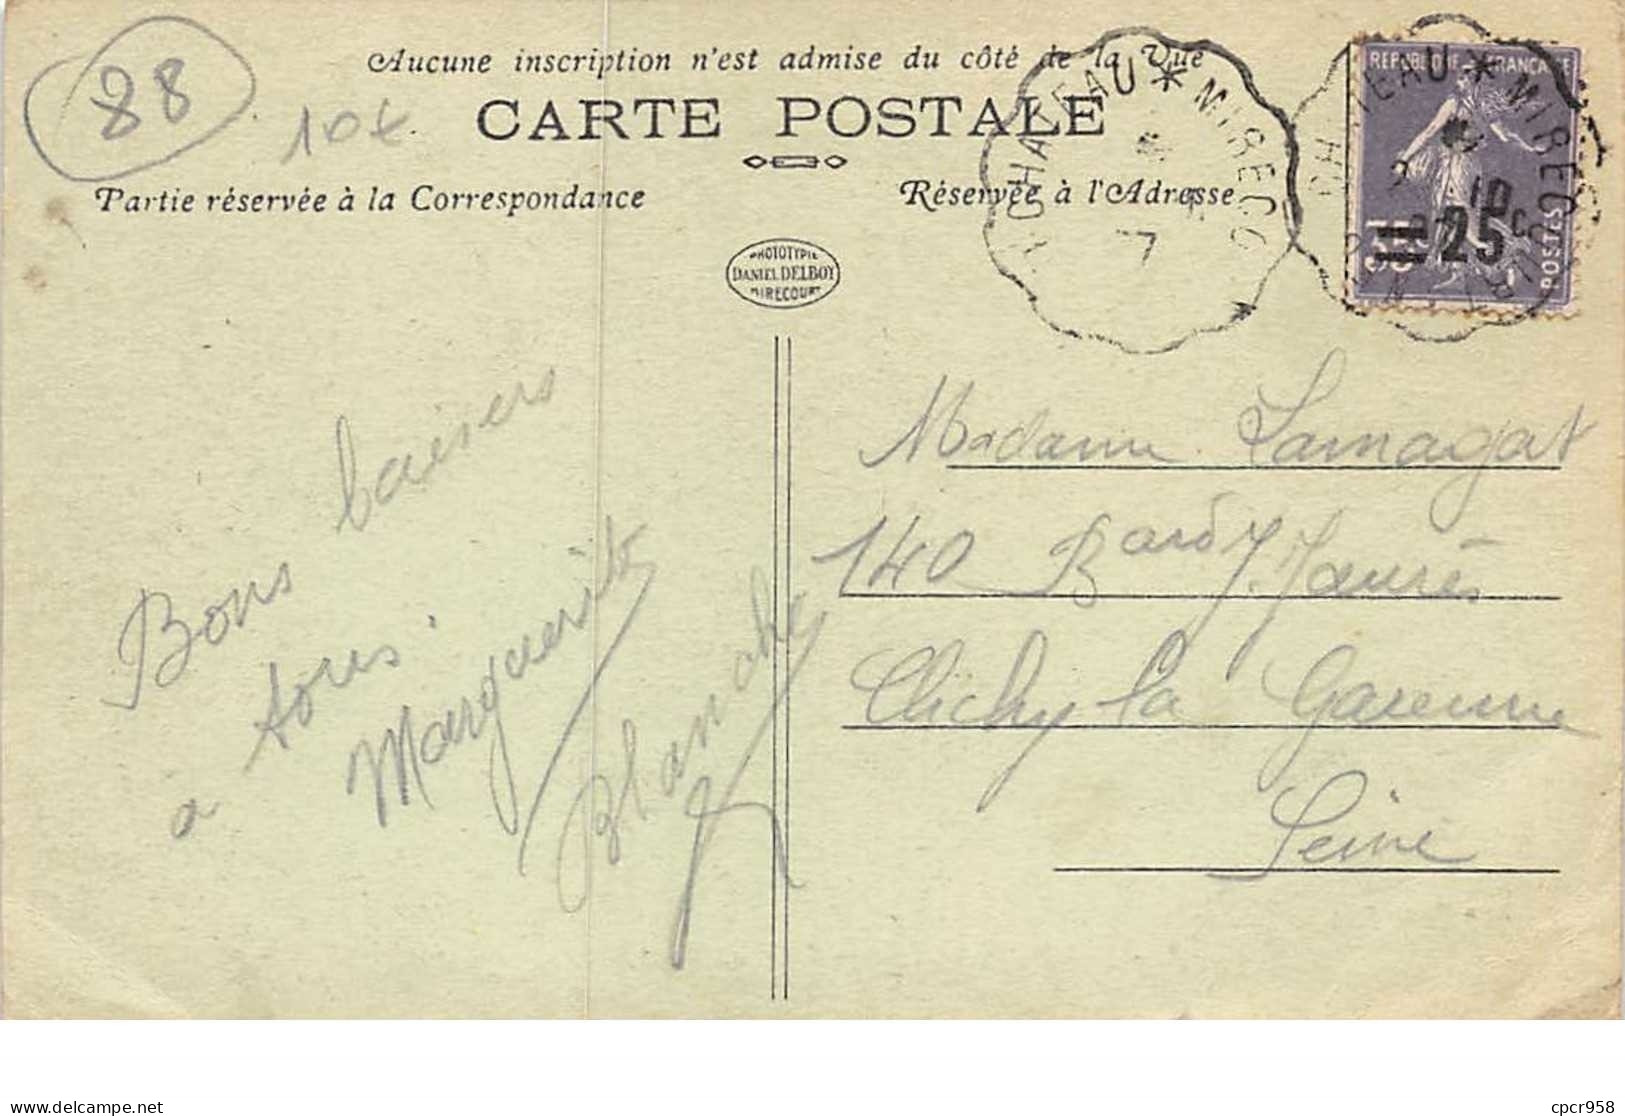 88
10€
Aucune inscription n'est admise du côté de la Vue
CARTE POSTALE
Partie réservée à la Correspondance
Réservée à l'Adresse
PHOTOTYPIE
DANIEL DELBOY
MIRECOURT
CHATEAU * MIRECO
CHATEAU * MIRECOURT
REPUBLIQUE FRANCAISE
25c
POSTES
Bons baisers
a tous.
Marguerite
Blanche
Madame Lamagat
140 Bard J. Jaurès
Clichy la Garenne
Seine
delcampe.net
cpcr958